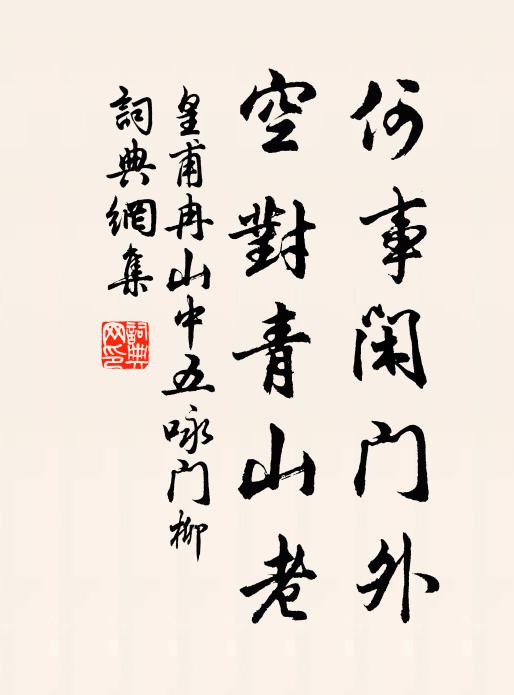 何事闲门外
空對青山老
皇甫冉山中五咏门柳
詞典網集
詞典
网印